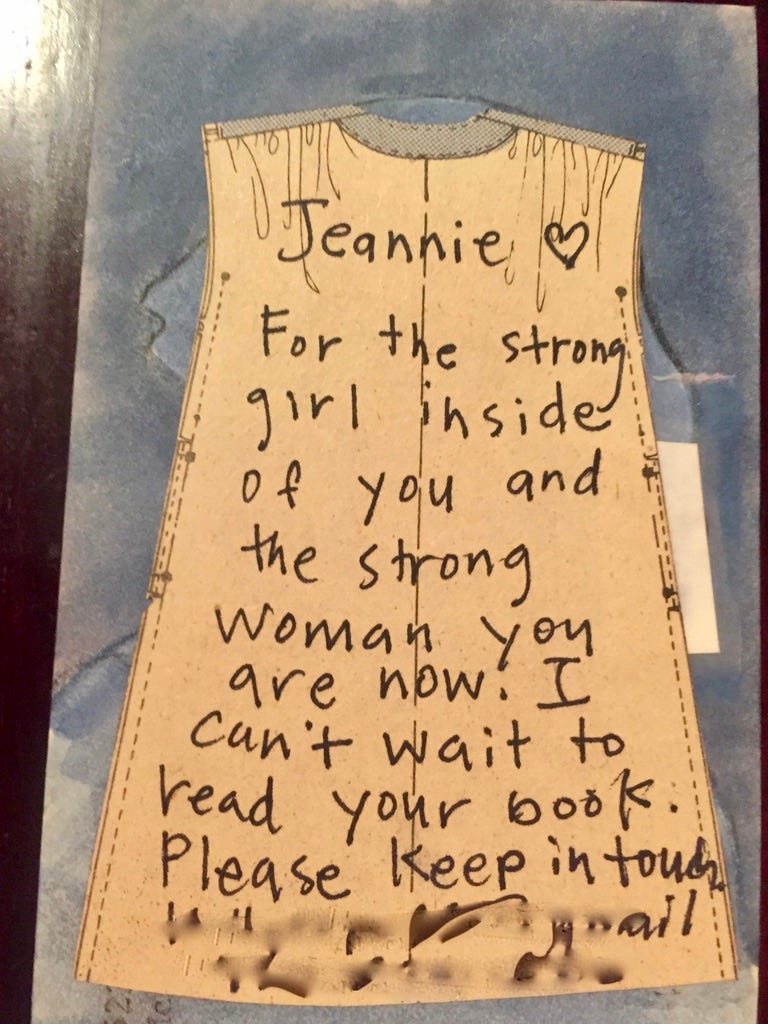 Jeannie ♡
For the strong
girl inside
of you and
the strong
woman you
are now. I
can't wait to
read your book.
Please keep in touch.